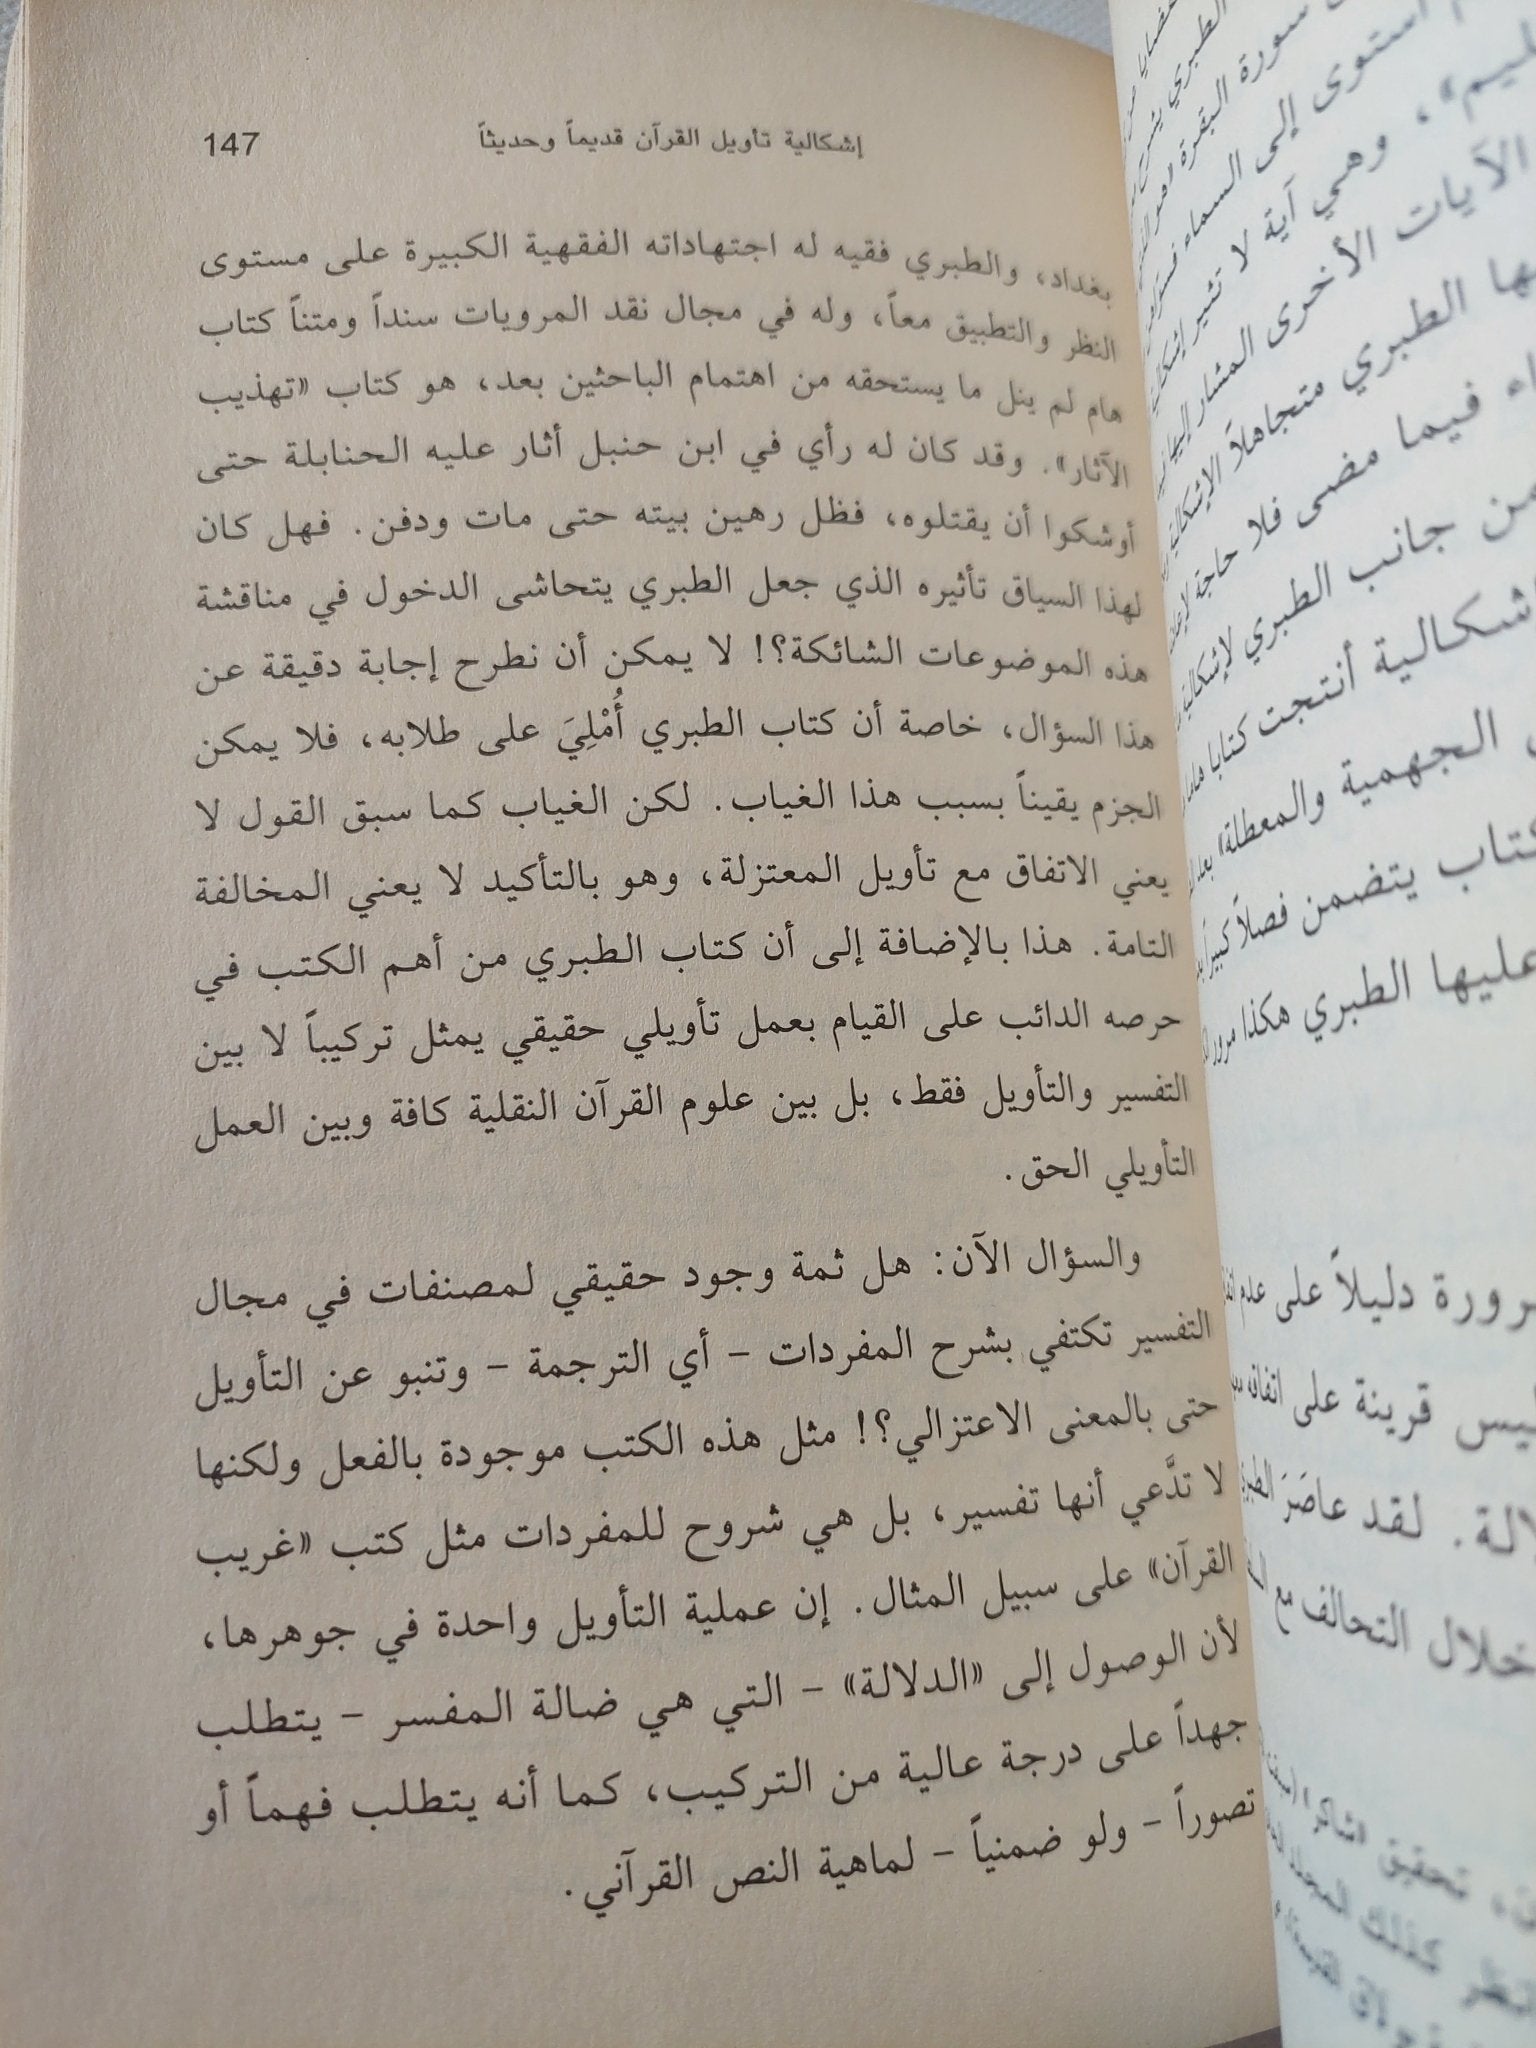 إشكالية تأويل القرآن قديماً وحديثاً 147
بغداد، والطبري فقيه له اجتهاداته الفقهية الكبيرة على مستوى
النظر والتطبيق معاً، وله في مجال نقد المرويات سنداً ومتناً كتاب
هام لم ينل ما يستحقه من اهتمام الباحثين بعد، هو كتاب «تهذيب
الآثار». وقد كان له رأي في ابن حنبل أثار عليه الحنابلة حتى
أوشكوا أن يقتلوه، فظل رهين بيته حتى مات ودفن. فهل كان
لهذا السياق تأثيره الذي جعل الطبري يتحاشى الدخول في مناقشة
هذه الموضوعات الشائكة؟! لا يمكن أن نطرح إجابة دقيقة عن
هذا السؤال، خاصة أن كتاب الطبري أُمْلِيَ على طلابه، فلا يمكن
الجزم يقيناً بسبب هذا الغياب. لكن الغياب كما سبق القول لا
يعني الاتفاق مع تأويل المعتزلة، وهو بالتأكيد لا يعني المخالفة
التامة. هذا بالإضافة إلى أن كتاب الطبري من أهم الكتب في
حرصه الدائب على القيام بعمل تأويلي حقيقي يمثل تركيباً لا بين
التفسير والتأويل فقط، بل بين علوم القرآن النقلية كافة وبين العمل
التأويلي الحق.
والسؤال الآن: هل ثمة وجود حقيقي لمصنفات في مجال
التفسير تكتفي بشرح المفردات – أي الترجمة – وتنبو عن التأويل
حتى بالمعنى الاعتزالي؟! مثل هذه الكتب موجودة بالفعل ولكنها
لا تدَّعي أنها تفسير، بل هي شروح للمفردات مثل كتب «غريب
القرآن» على سبيل المثال. إن عملية التأويل واحدة في جوهرها،
لأن الوصول إلى «الدلالة» – التي هي ضالة المفسر – يتطلب
جهداً على درجة عالية من التركيب، كما أنه يتطلب فهماً أو
تصوراً – ولو ضمنياً – لماهية النص القرآني.
استوى إلى السماء
وهي آية لا تثير
الآيات الأخرى المشار إليها
الطبري متجاهلاً الإشكالية
فيما مضى فلا حاجة
من جانب الطبري
أنتجت كتابا
الجهمية والمعطلة»
يتضمن فصلاً كبيراً
عليها الطبري هكذا مرور
دليلاً على عدم
قرينة على اتفاقه
لقد عاصَرَ
خلال التحالف مع
تحقيق «شاكر»